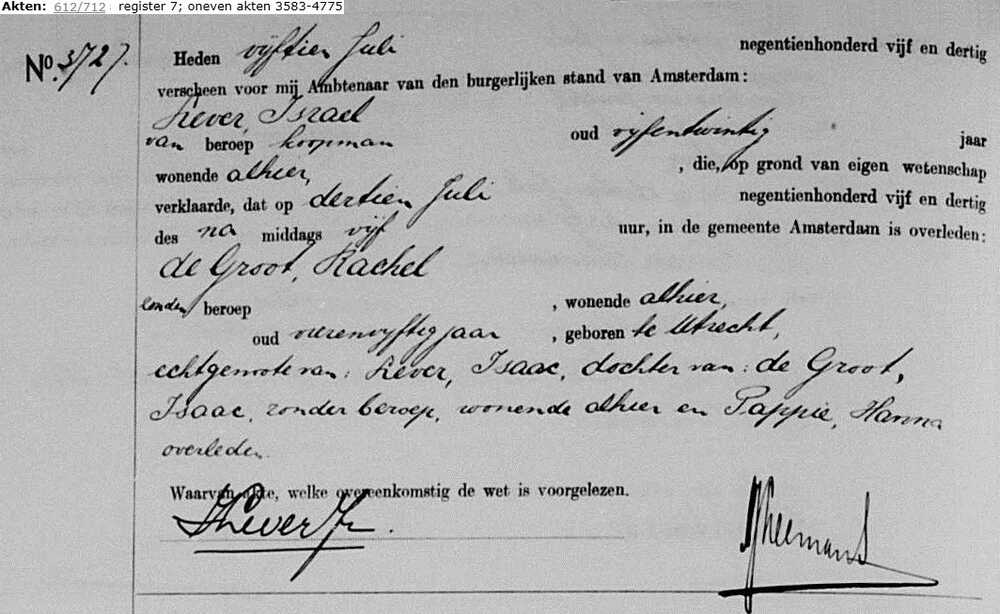 Akten: 612/712 register 7; oneven akten 3583-4775
No. 3727.
Heden vijftien Juli negentienhonderd vijf en dertig
verscheen voor mij Ambtenaar van den burgerlijken stand van Amsterdam:
Lever, Israel
van beroep koopman oud vijfentwintig jaar
wonende alhier, , die, op grond van eigen wetenschap
verklaarde, dat op dertien Juli negentienhonderd vijf en dertig
des na middags vijf uur, in de gemeente Amsterdam is overleden:
de Groot, Rachel
zonder beroep , wonende alhier,
oud vierenvijftig jaar , geboren te Utrecht,
echtgenoote van: Lever, Isaac, dochter van: de Groot,
Isaac, zonder beroep, wonende alhier en Pappie, Hanna
overleden.
Waarvan akte, welke overeenkomstig de wet is voorgelezen.
ILever Jr.